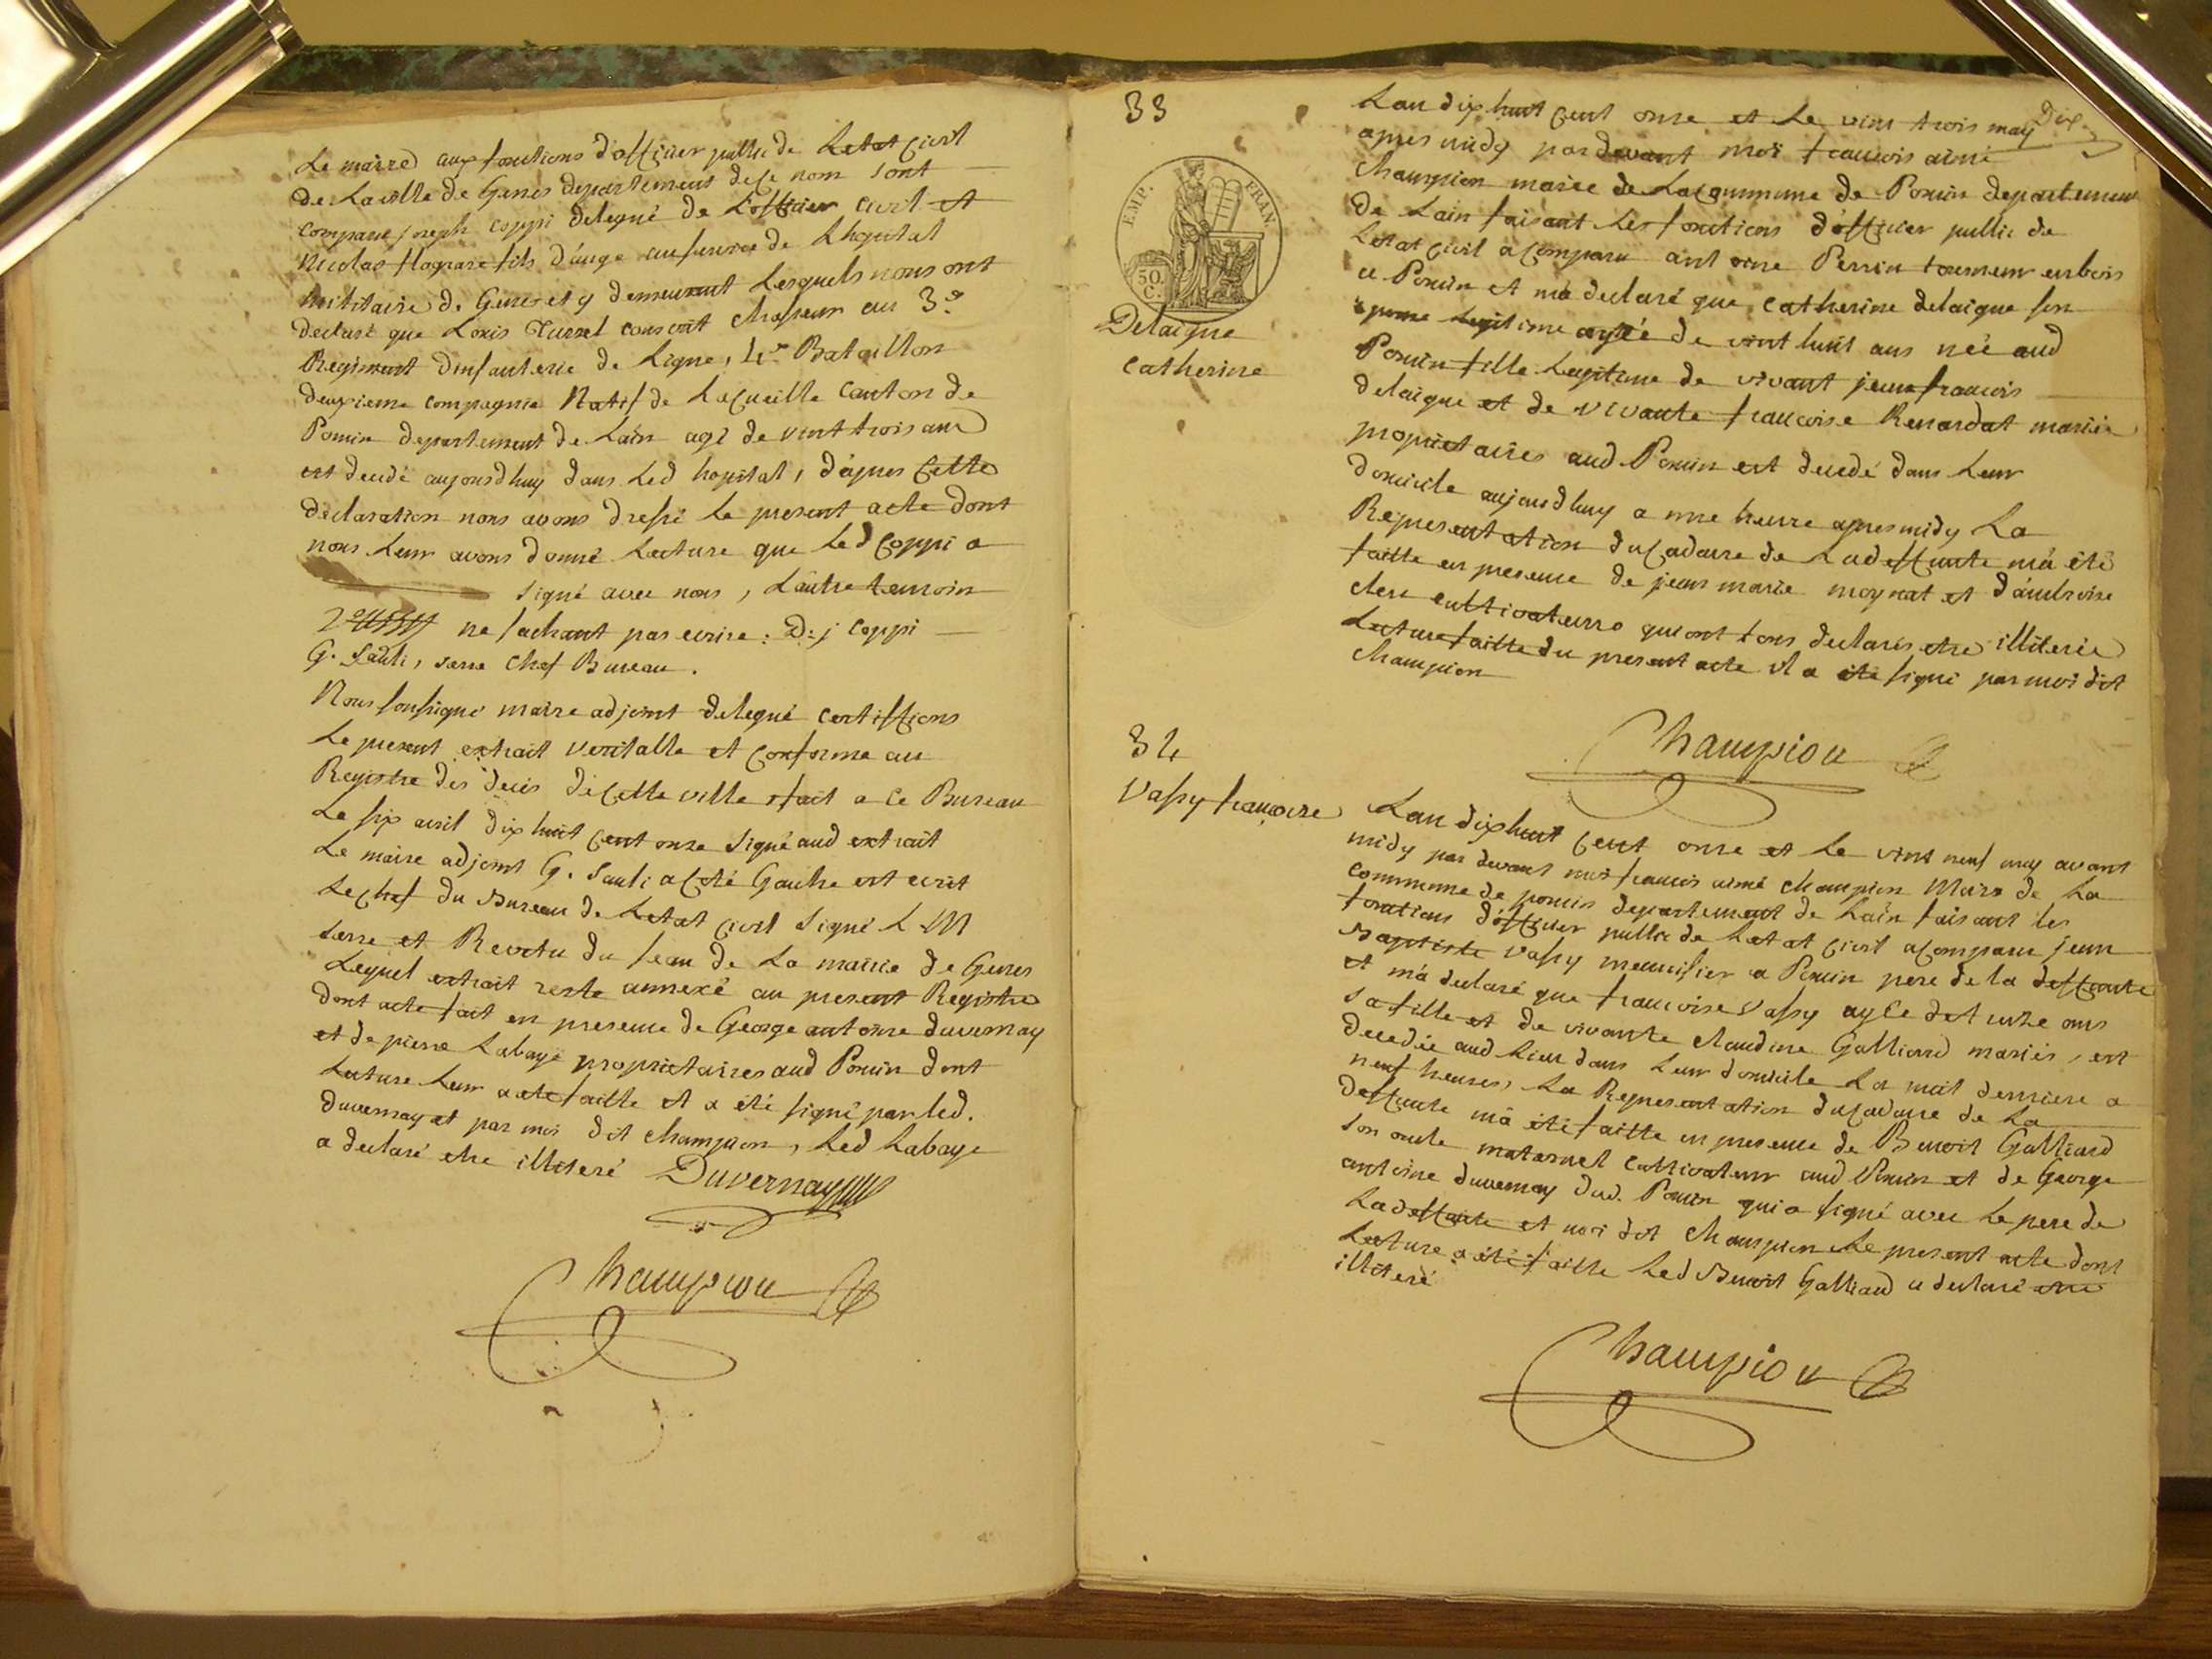 Le maire aux fonctions d'officier public de Letat civil
de La ville de Genes departement de ce nom sont
comparu joseph coppi delegué de L'officier civil et
Nicolas fils d'ange au service de Lhopital
militaire de Genes et y demeurant Lesquels nous ont
declaré que Louis conscrit chasseur au 3e
Regiment d'infanterie de Ligne, 4e Bataillon
deuxieme compagnie Natif de Lacueille canton de
Poncin departement de Lain agé de vint trois ans
est decedé aujourdhuy dans Led hopital, d'apres cette
declaration nous avons dressé Le present acte dont
nous Leur avons donné Lecture que Led coppi a
signé avec nous, L'autre temoin
ne sachant pas ecrire : D. j coppi
G. Sauli, serra chef Bureau.
Nous soussigné maire adjoint delegué certiffions
Le present extrait veritable et conforme au
Registre des deces de cette ville fait a ce Bureau
Le six avril dix huit cent onze signé aud extrait
Le maire adjoint G. Sauli a coté Gauche est ecrit
Le chef du Bureau de Letat civil signé L M
serre et Revetu du seau de La mairie de Genes
Lequel extrait reste annexé au present Registre
dont acte fait en presence de George antoine duvernay
et de pierre Labaye proprietaires aud Poncin dont
Lecture Leur a eté faitte et a été signé par Led.
duvernay et par moi dit champion, Led Labaye
a declaré etre illiteré Duvernay
Champion
33
Dix
EMP. FRAN.
50 C.
Delaigue
Catherine
Lan dix huit cent onze et Le vint trois may
apres midy pardevant moi francois aimé
Champion maire de La commune de Poncin departement
de Lain faisant Les fonctions d'officier public de
Letat civil a comparu antoine Perrin tourneur en bois
a Poncin et m'a declaré que catherine delaigue son
epouse Legitime agée de vint huit ans née aud
Poncin fille Legitime de vivant jean francois
delaigue et de vivante francoise Renardat mariés
proprietaires aud Poncin est decedé dans Leur
domicile aujourdhuy a une heure apres midy La
Representation du cadavre de La deffunte m'a été
faitte en presence de jean marie moynat et d'ambroise
clerc cultivateurs qui ont tous declarés etre illiterés
Lecture faitte du present acte il a été signé par moi dit
Champion
Champion
34
Vassy francoise
Lan dix huit cent onze et Le vint neuf may avant
midy par devant moi francois aimé champion Maire de La
commune de poncin departement de Lain faisant les
fonctions d'officier public de Letat civil a comparu jean
Baptiste Vassy menuisier a Poncin pere de la deffunte
et m'a declaré que francoise Vassy agée d'et onze ans
sa fille et de vivante claudine Galliard mariés, est
decedée aud Lieu dans Leur domicile La nuit derniere a
neuf heures, La Representation du cadavre de La
deffunte m'a été faitte en presence de Benoit Galliard
son oncle maternel cultivateur aud Poncin et de George
antoine duvernay dud. Poncin qui a signé avec Le pere de
La deffunte et moi dit champion Le present acte dont
Lecture a été faitte Led Benoit Galliard a declaré etre
illiteré
Champion